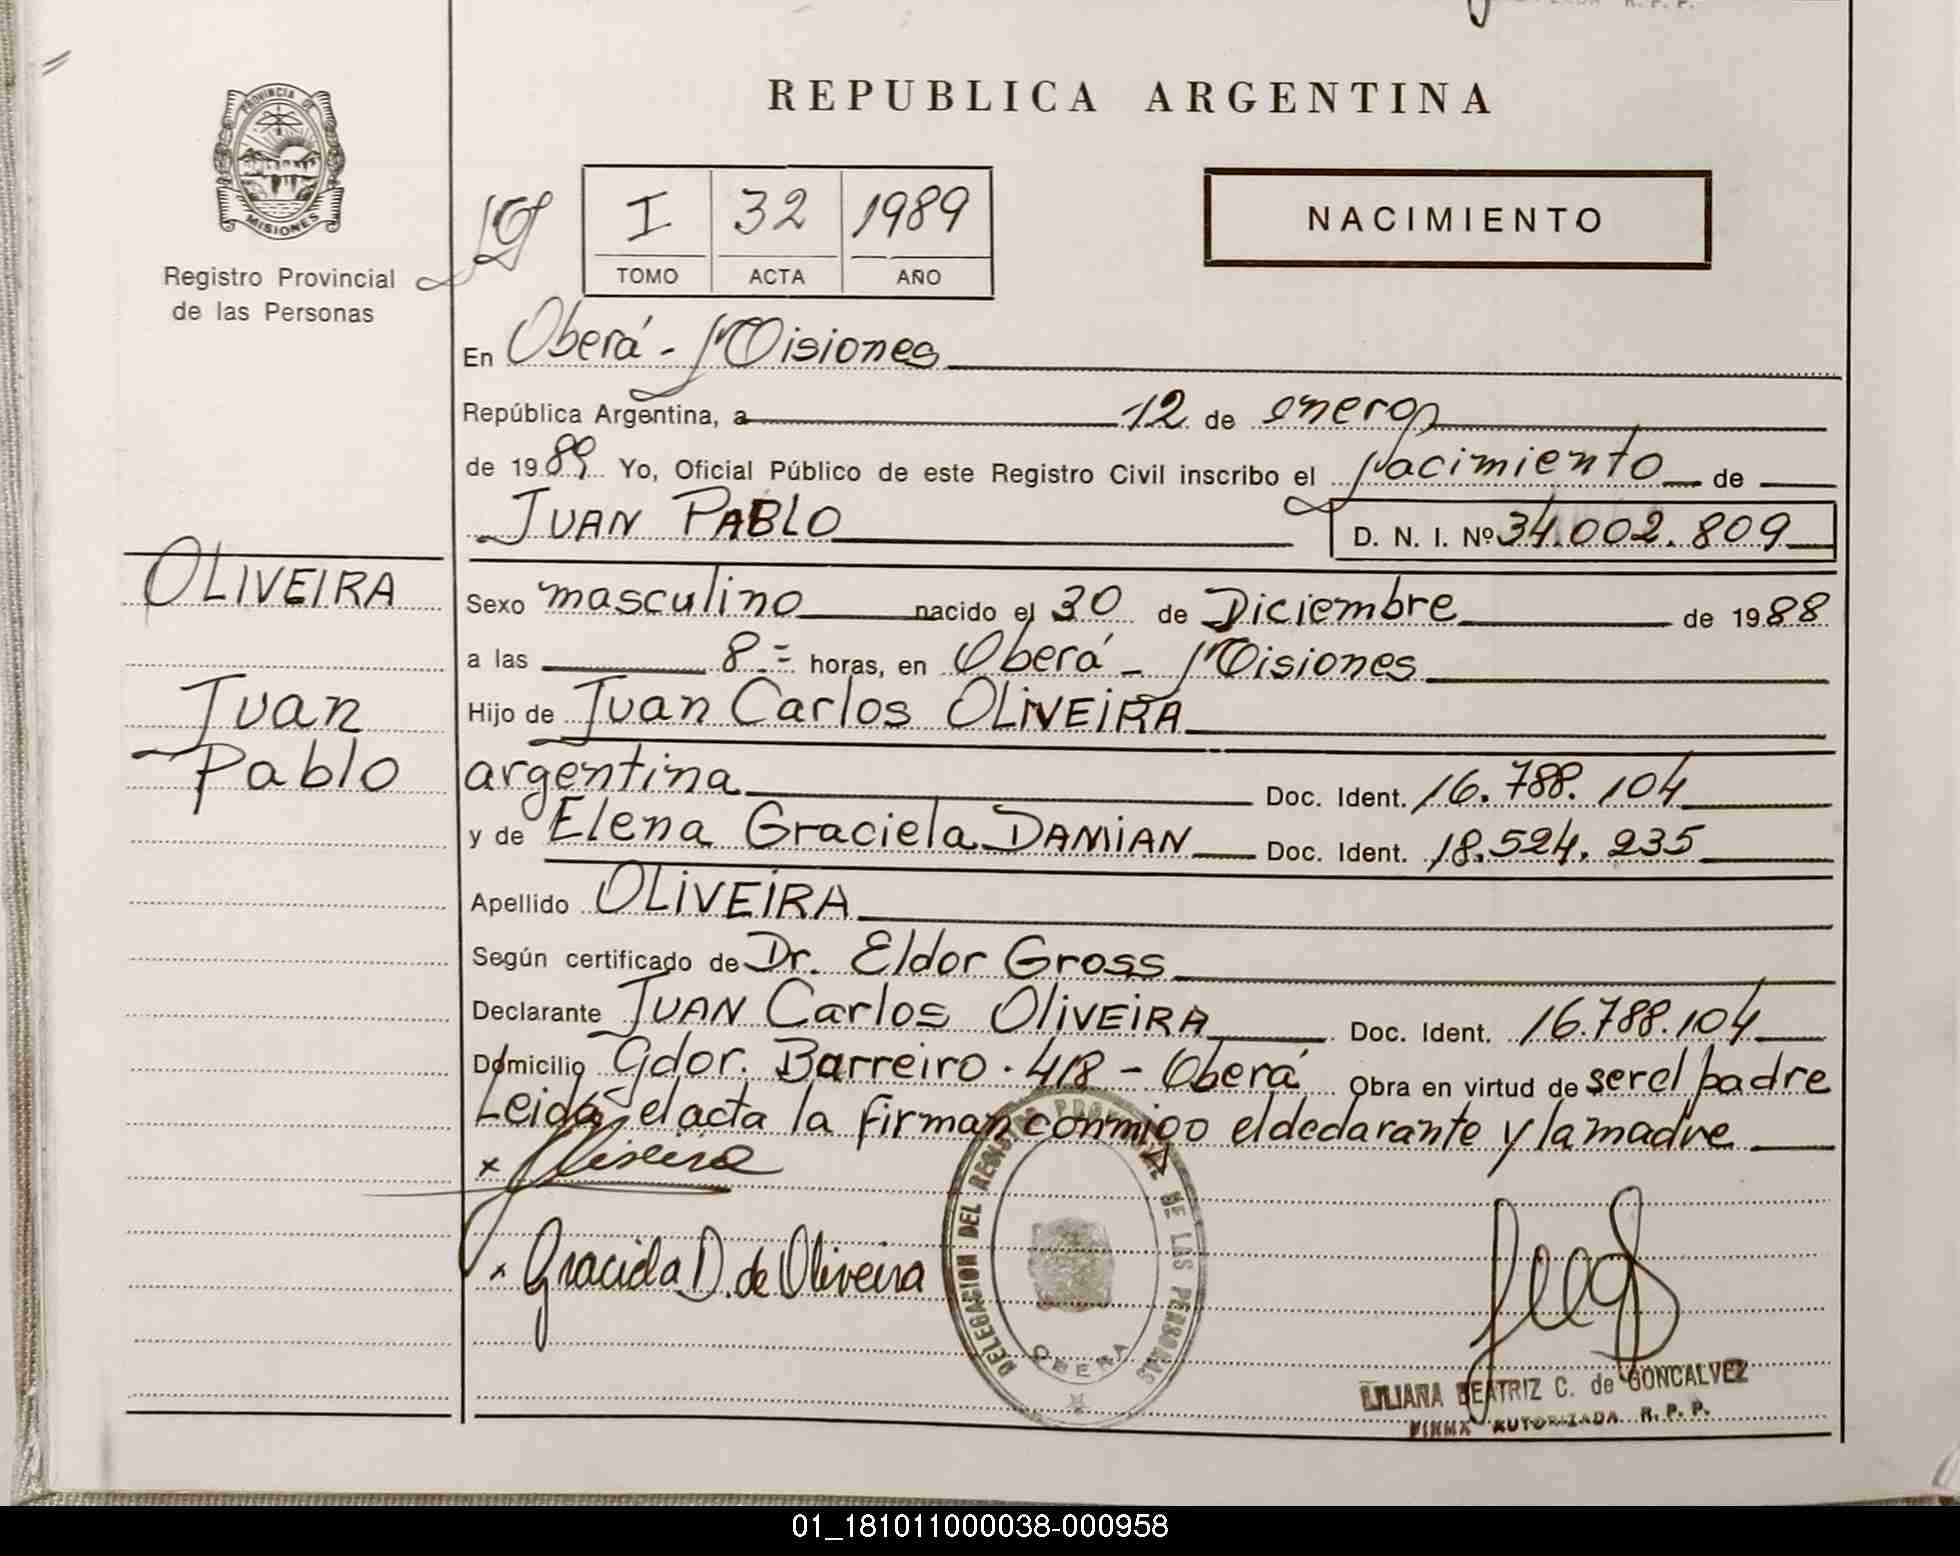 REPUBLICA ARGENTINA
PROVINCIA DE
MISIONES
Registro Provincial
de las Personas
I 32 1989
TOMO ACTA AÑO
NACIMIENTO
En Oberá - Misiones
República Argentina, a 12 de enero
de 1989 Yo, Oficial Público de este Registro Civil inscribo el nacimiento de
JUAN PABLO D. N. I. Nº 34.002.809
OLIVEIRA
Juan
Pablo
Sexo masculino nacido el 30 de Diciembre de 1988
a las 8.= horas, en Oberá - Misiones
Hijo de Juan Carlos OLIVEIRA
argentina Doc. Ident. 16.788.104
y de Elena Graciela DAMIAN Doc. Ident. 18.524.235
Apellido OLIVEIRA
Según certificado de Dr. Eldor Gross
Declarante JUAN Carlos OliVEiRA Doc. Ident. 16.788.104
Domicilio Gdor. Barreiro . 418 - Oberá Obra en virtud de ser el padre
Leida el acta la firman conmigo el declarante y la madre
x Oliveira
x Graciela D. de Oliveira
DELEGACION DEL REGISTRO PROVINCIAL DE LAS PERSONAS
OBERA
LILIANA BEATRIZ C. de GONCALVEZ
FIRMA AUTORIZADA R. P. P.
01_181011000038-000958